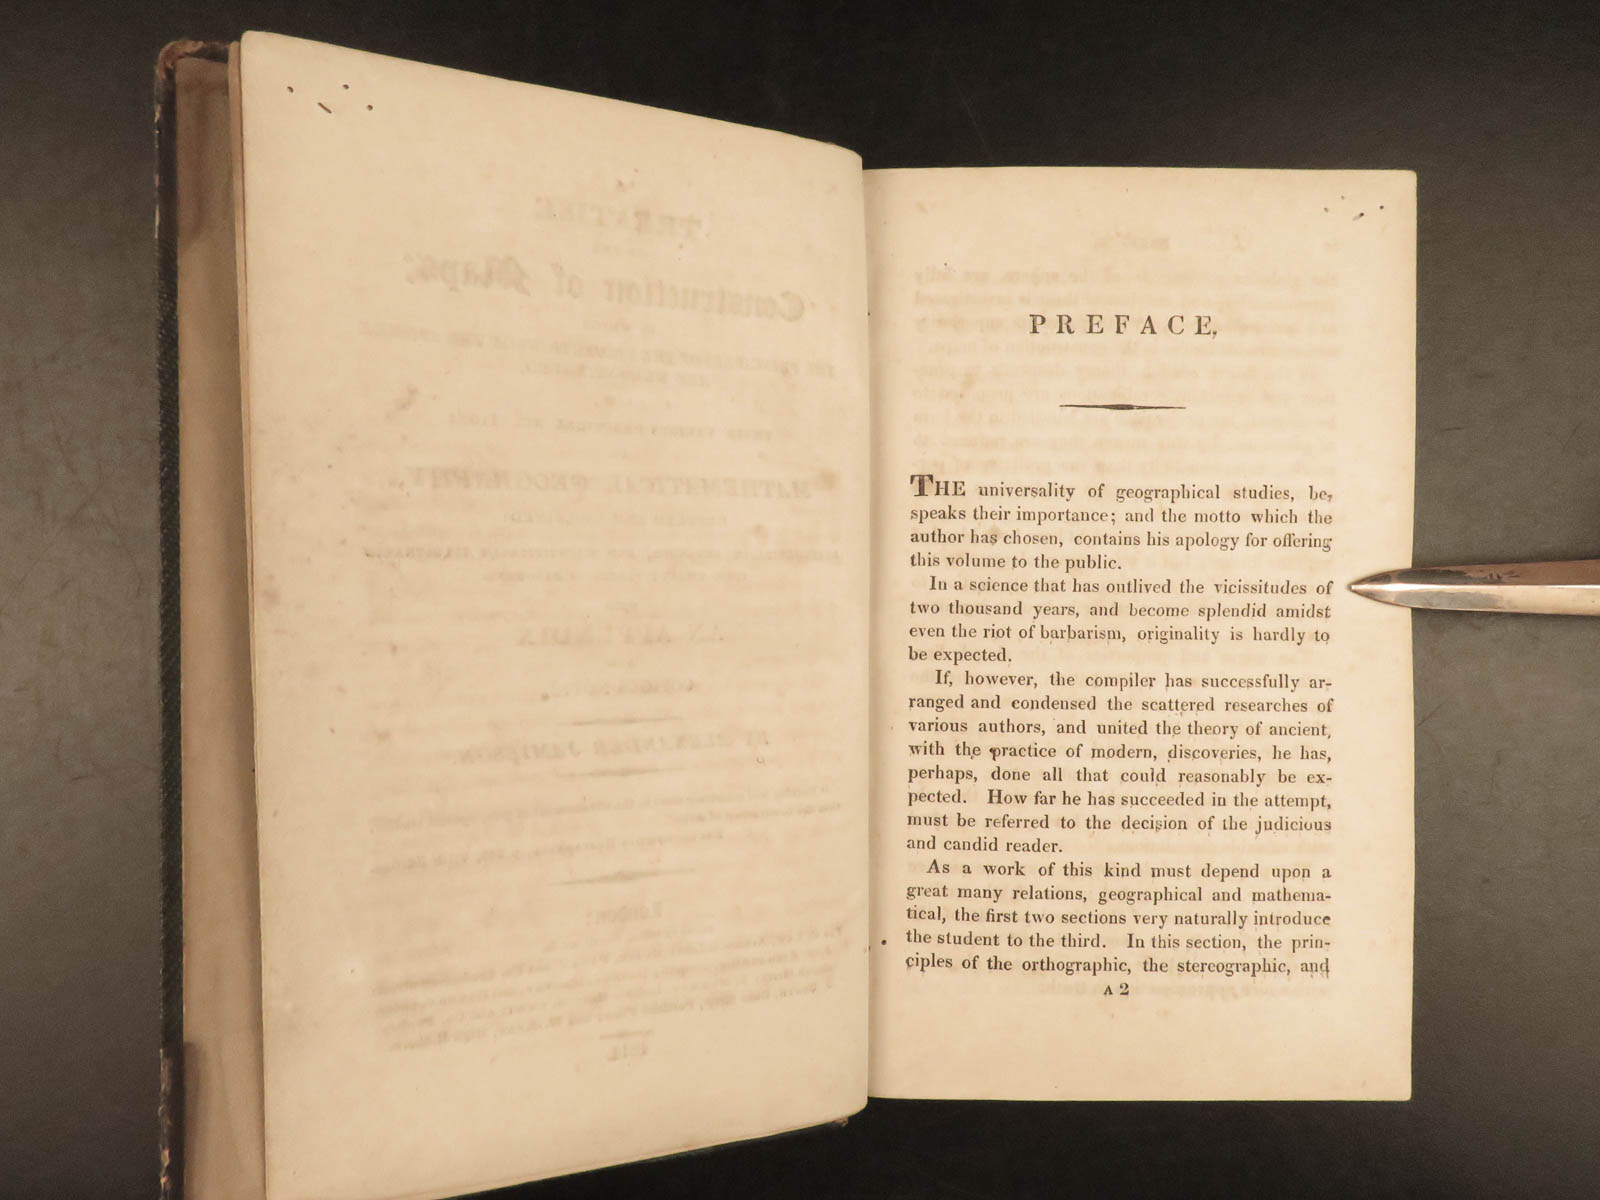 PREFACE,
THE universality of geographical studies, be-
speaks their importance; and the motto which the
author has chosen, contains his apology for offering
this volume to the public.
In a science that has outlived the vicissitudes of
two thousand years, and become splendid amidst
even the riot of barbarism, originality is hardly to
be expected.
If, however, the compiler has successfully ar-
ranged and condensed the scattered researches of
various authors, and united the theory of ancient,
with the practice of modern, discoveries, he has,
perhaps, done all that could reasonably be ex-
pected. How far he has succeeded in the attempt,
must be referred to the decision of the judicious
and candid reader.
As a work of this kind must depend upon a
great many relations, geographical and mathema-
tical, the first two sections very naturally introduce
the student to the third. In this section, the prin-
ciples of the orthographic, the stereographic, and
A 2